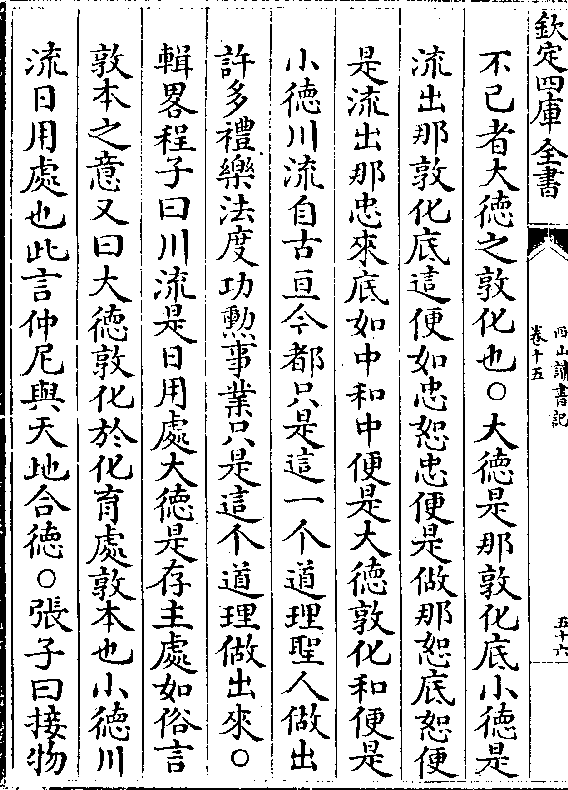 欽定四庫全書
西山讀書記
卷十五
五十六
不已者大德之敦化也○大德是那敦化底小德是
流出那敦化底這便如忠恕忠便是做那恕底恕便
是流出那忠來底如中和中便是大德敦化和便是
小德川流自古亘今都只是這一个道理聖人做出
許多禮樂法度功勲事業只是這个道理做出來○
輯畧程子曰川流是日用處大德是存主處如俗言
敦本之意又曰大德敦化於化育處敦本也小德川
流日用處也此言仲尼與天地合德○張子曰接物